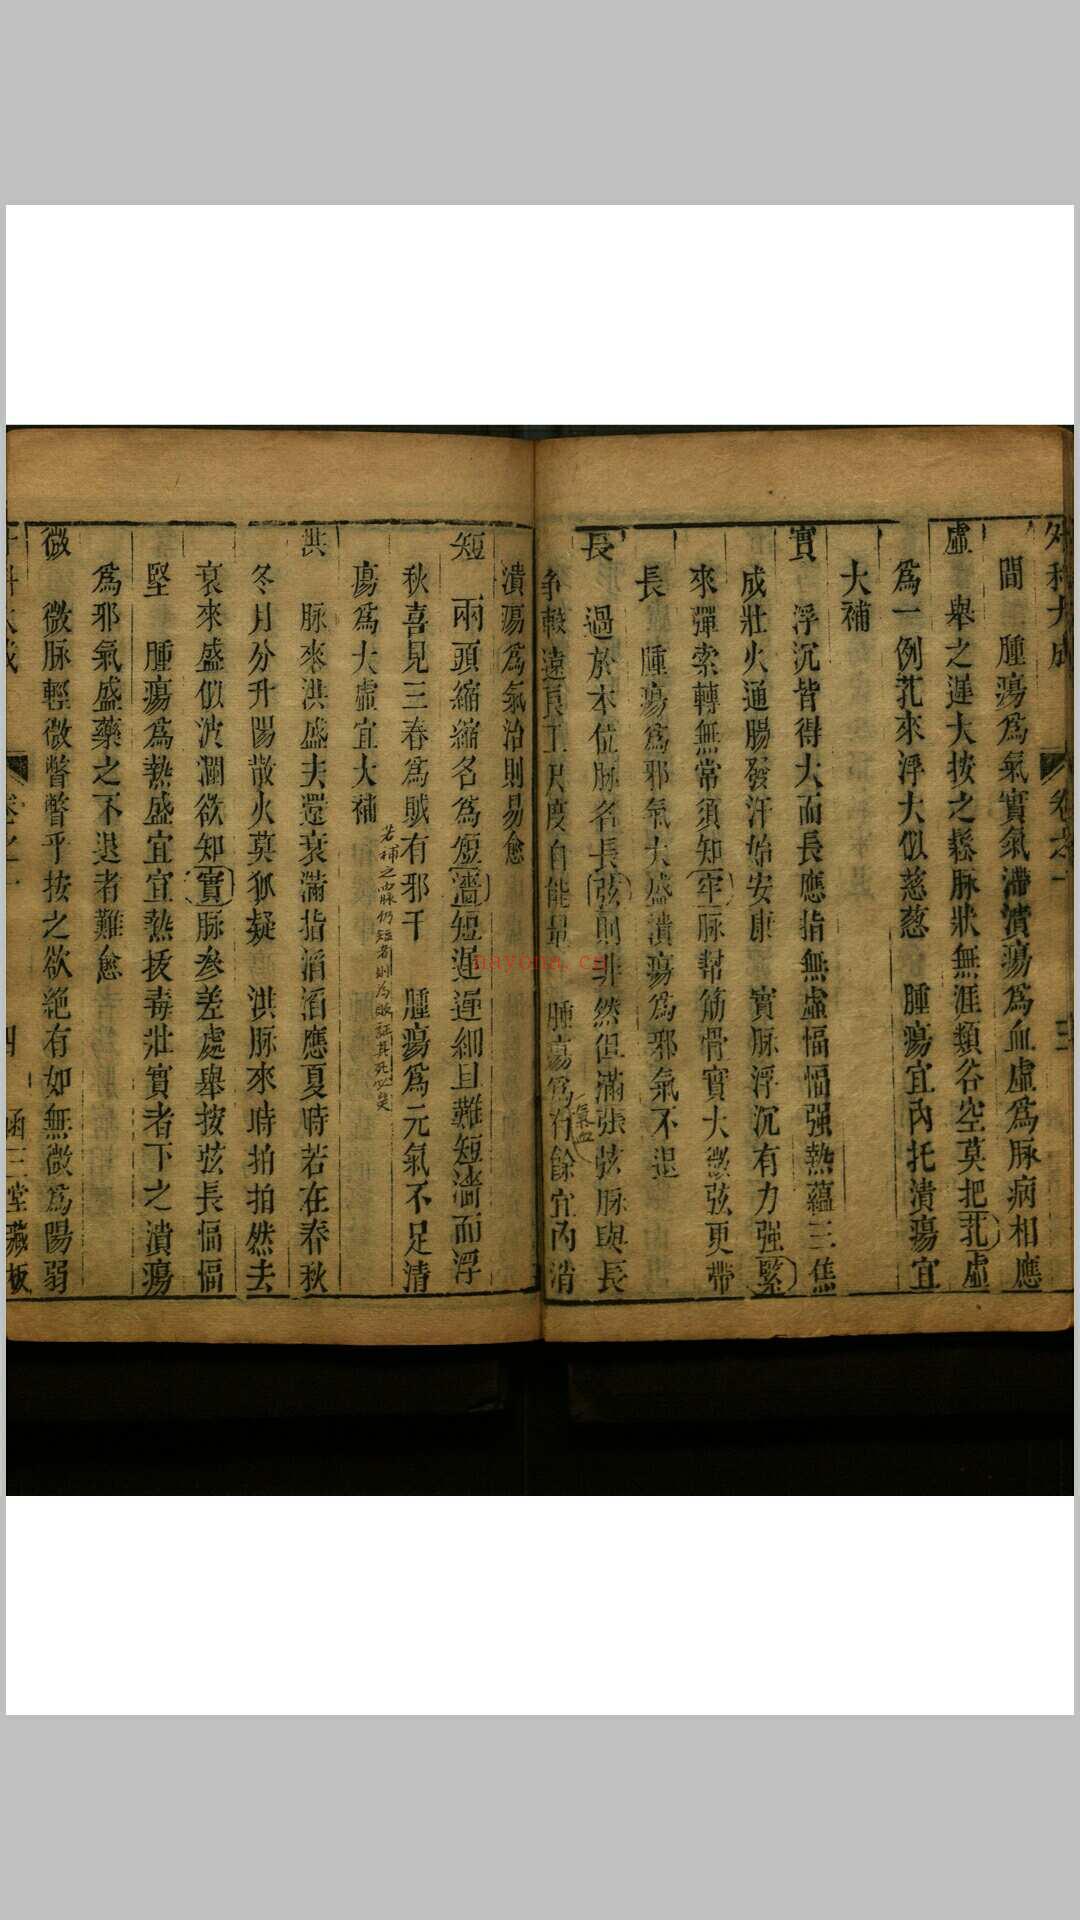 外科大成
卷之一
三
間　腫瘍爲氣實氣滯潰瘍爲血虛爲脉病相應
虛
舉之遲大按之鬆脉狀無涯類谷空莫把芤虛
爲一例芤來浮大似慈葱　腫瘍宜內托潰瘍宜
大補
實
浮沉皆得大而長應指無虛愊愊强熱蘊三焦
成壯火通腸發汗始安康　實脉浮沉有力强緊
來彈索轉無常須知牢脉幫筋骨實大微弦更帶
長　腫瘍爲邪氣大盛潰瘍爲邪氣不退
長
過於本位脉名長弦則非然但滿張弦脉與長
爭較遠良工尺度自能量　腫瘍爲有餘宜內消
氣血
潰瘍爲氣治則易愈
短
兩頭縮縮名爲短濇短遲遲細且難短濇而浮
秋喜見三春爲賊有邪干　腫瘍爲元氣不足潰
瘍爲大虛宜大補
若補之而脉仍短者則为敗証其死必矣
洪
脉來洪盛去還衰滿指滔滔應夏時若在春秋
冬月分升陽散火莫狐疑　洪脉來時拍拍然去
衰來盛似波瀾欲知實脉參差處舉按弦長愊愊
堅　腫瘍爲熱盛宜宣熱拔毒壯實者下之潰瘍
爲邪氣盛藥之不退者難愈
微
微脉輕微瞥瞥乎按之欲絶有如無微爲陽弱
卷之一
四
函三堂藏板
nayona.cn